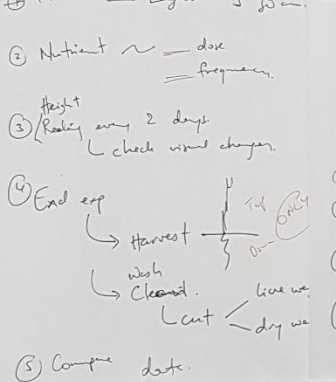 ② Nutrient ~ = dose
= frequency.
Height
③ (Reading every 2 days.
↳ check visual changes.
④ End exp
↳ Harvest
Top
Down
ONLY
Wash
↳ Cleaned.
↳ cut < live we
dry we
⑤ Compare data.